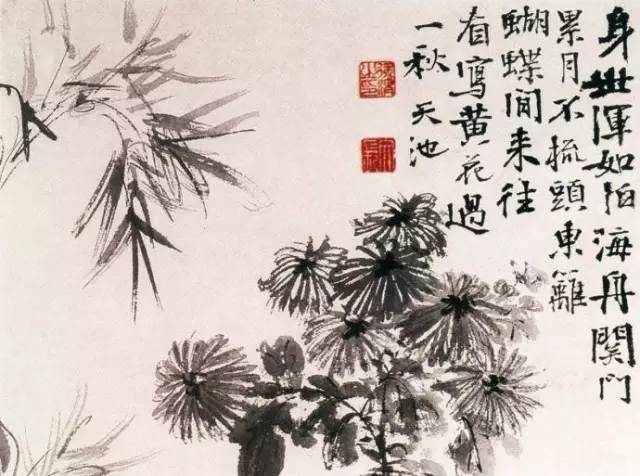 身世渾如泊海舟關門
累月不梳頭東籬
蝴蝶間来往
看寫黃花過
一秋 天池